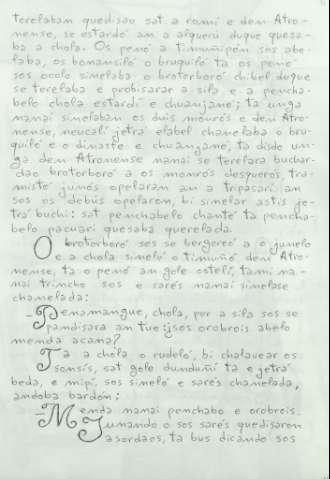 terelabam quedisao sat a romí e dem Atro-
nense, se estardó am a alquerú duque quesa-
ba a chola. Os penó a timuñipén sos abe-
laba, os bomansiló o bruquiló ta os penó
sos ocolo simelaba o broterboró chibel duque
se terelaba e probisarar a sila e a pencha-
belo chola estardí e chuanjané; ta unga
manai simelabam os duis mourós e dem Atro-
nense, neucalí jetrá elabel chanelaba o bru-
quiló e o dinaste e chuanjané, ta disdo un-
ga dem Atronense manai se terelara buchar-
dao broterboró a os monrós despuerós, tra-
misto junós opelaram am a tripasarí am
sos os debús opelarom, bi simelar astis je-
tra buchí: sat penchabelo chanté ta pencha-
belo pacuari quesaba querelada.
O broterboró sos se bergoreó a o junelo
e a chola simeló o timuñó dem Atro-
nense, ta o penó am gole ostelí, tami ma-
nai trincho sos e sarés manai simelase
chanelada:
-Penamangue, chola, por a sila sos se
pandisara am tue: ¿sos orobrois abelo
menda acama?
Ta a chola o rudeló, bi chalavear os
sonsís, sat gole dunduñí ta e jetrá
beda, e mipí, sos simeló e sarés chanelada,
andoba bardón:
-Menda manai penchabo e orobrois.
Junando o sos sarés quedisarom
asordaos, ta bus dicando sos